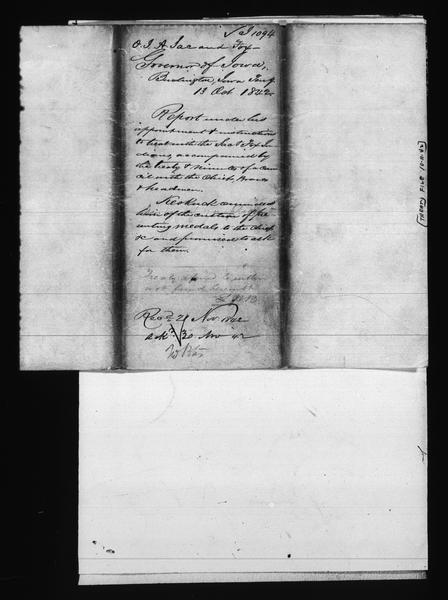 I 1094
O. I. A Sac and Fox
Governor of Iowa,
Burlington, Iowa Ter'y
13 Oct 1842
Report under his
appointment & instructions
to treat with the Sac & Fox In
dians, accompanied by
the treaty & minutes of a coun
cil with the Chiefs, Braves
& headmen.
Keokuck reminded
him of the custom of pre
senting medals to the Chiefs
& and promised to ask
for them.
Treaty
not found herewith
Rec'd 21 Nov 1842
30 Nov 42
(TREATY FILE